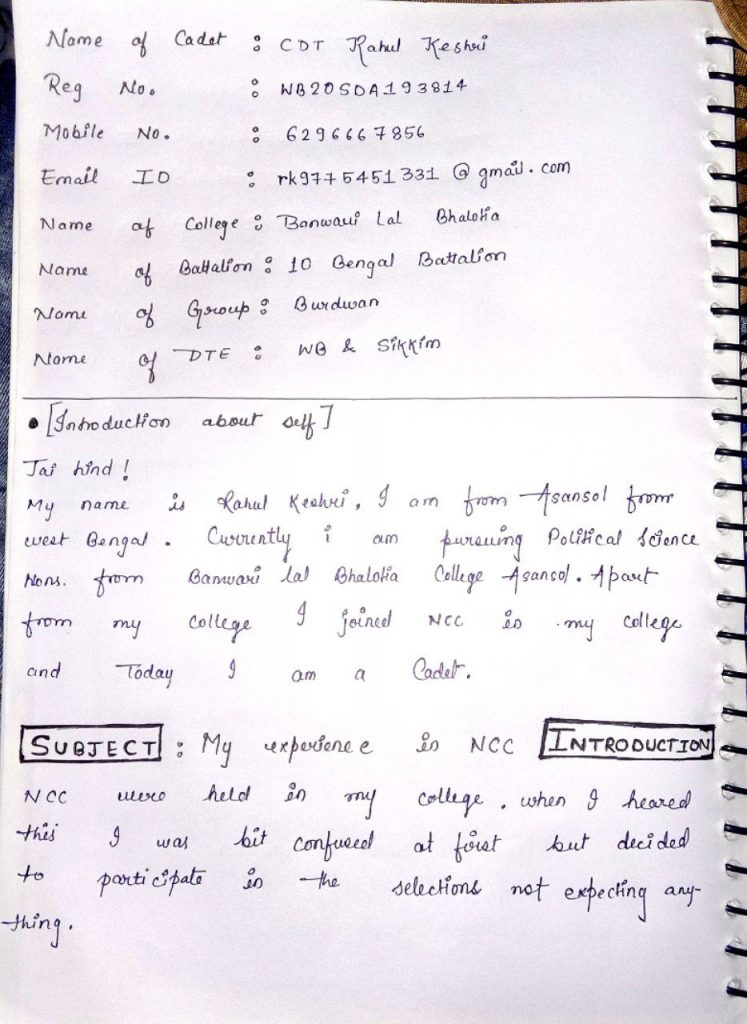 Name of Cadet : CDT Rahul Keshri
Reg No. : WB20SDA193814
Mobile No. : 6296667856
Email ID : rk9775451331@gmail.com
Name of College : Banwari Lal Bhalotia
Name of Battalion : 10 Bengal Battalion
Name of Group : Burdwan
Name of DTE : WB & Sikkim
• [Introduction about self]
Jai hind!
My name is Rahul Keshri, I am from Asansol from
west Bengal. Currently i am pursuing Political Science
Hons. from Banwari lal Bhalotia College Asansol. Apart
from my college I joined NCC in my college
and Today I am a Cadet.
SUBJECT : My experience in NCC INTRODUCTION
NCC were held in my college. when I heared
this I was bit confused at first but decided
to participate in the selections not expecting any-
thing.